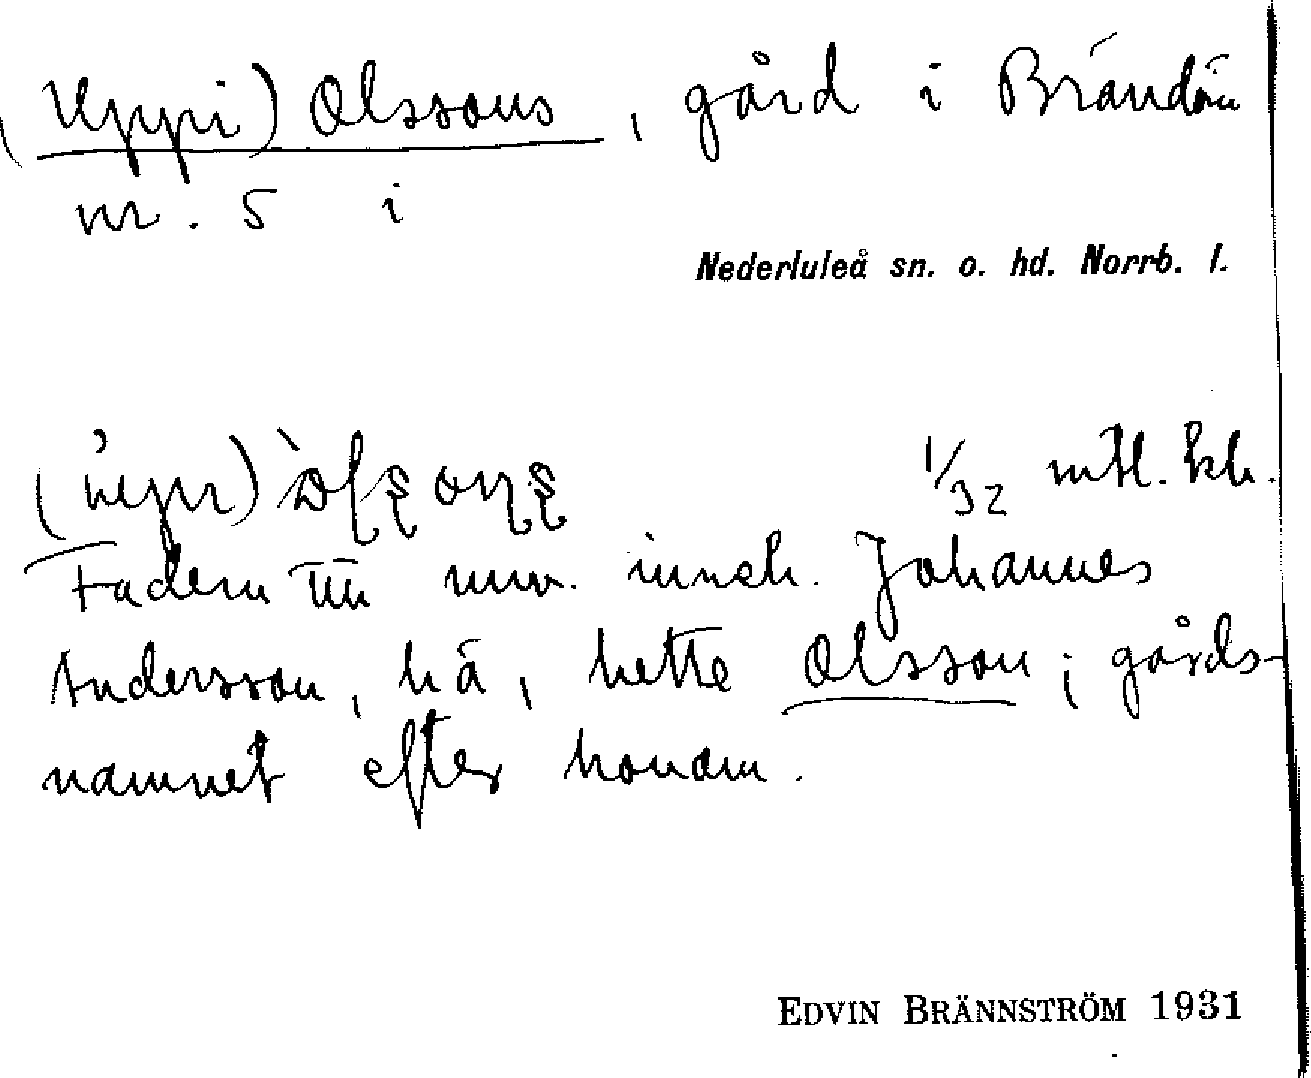 (Uppi) Olssons, gård i Brändön
nr. 5 i
Nederluleå sn. o. hd. Norrb. l.
1/32 mtl. kr.
Fadern till nuv. inneh. Johannes
Andersson, hä, hette Olsson; gårds-
namnet efter honom.
EDVIN BRÄNNSTRÖM 1931